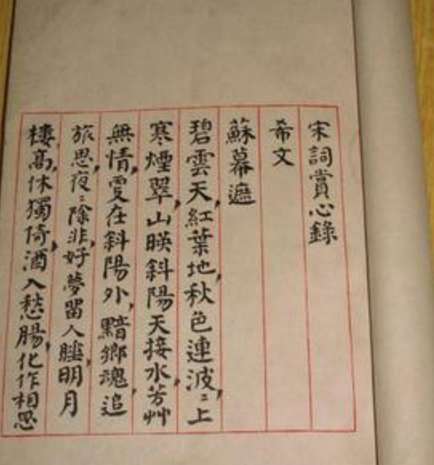 宋詞賞心錄
希文
蘇幕遮
碧雲天，紅葉地，秋色連波，〻上
寒煙翠，山暎斜陽天接水，芳艸
無情，更在斜陽外，黯鄉魂，追
旅思，夜〻除非，好夢留人睡，明月
樓高，休獨倚，酒入愁腸，化作相思